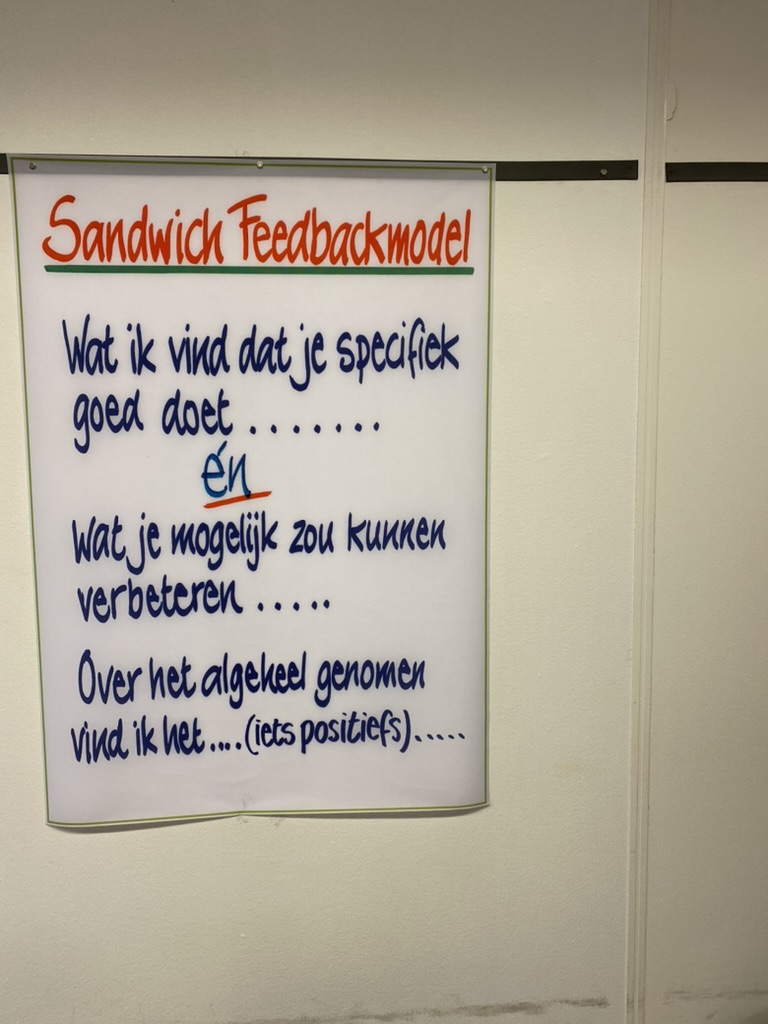 Sandwich Feedbackmodel
Wat ik vind dat je specifiek
goed doet .......
én
Wat je mogelijk zou kunnen
verbeteren .....
Over het algeheel genomen
vind ik het ....(iets positiefs).....